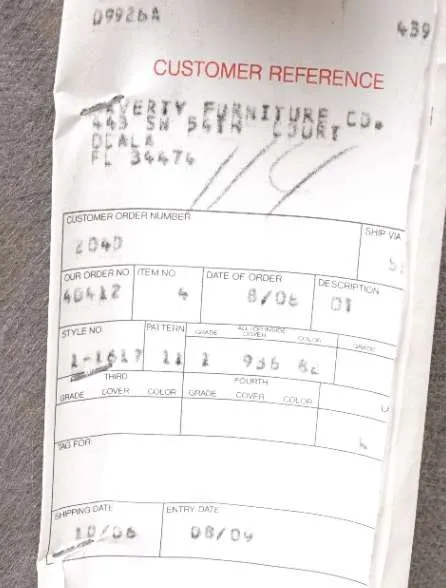 D9926A 439
CUSTOMER REFERENCE
FURNITURE CO.
445 SW 54TH COURT
OCALA
FL 34474
114
CUSTOMER ORDER NUMBER SHIP VIA
204D
OUR ORDER NO ITEM NO. DATE OF ORDER DESCRIPTION
40412 4 8/06 01
STYLE NO. PATTERN GRADE COVER COLOR GRADE
1-1617 11 1 936 82
THIRD FOURTH
GRADE COVER COLOR GRADE COVER COLOR
TAG FOR
SHIPPING DATE ENTRY DATE
10/06 08/09